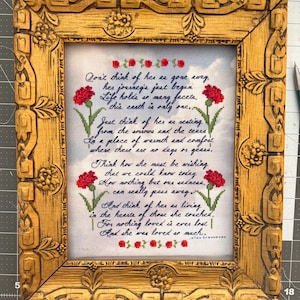 Don't think of her as gone away,
her journey's just begun.
Life holds so many facets,
this earth is only one.
Just think of her as resting
from the sorrows and the tears
In a place of warmth and comfort
where there are no days or years.
Think how she must be wishing
that we could know today
How nothing but our sadness
can really pass away.
And think of her as living
in the hearts of those she touched,
For nothing loved is ever lost
And she was loved so much.
5
18